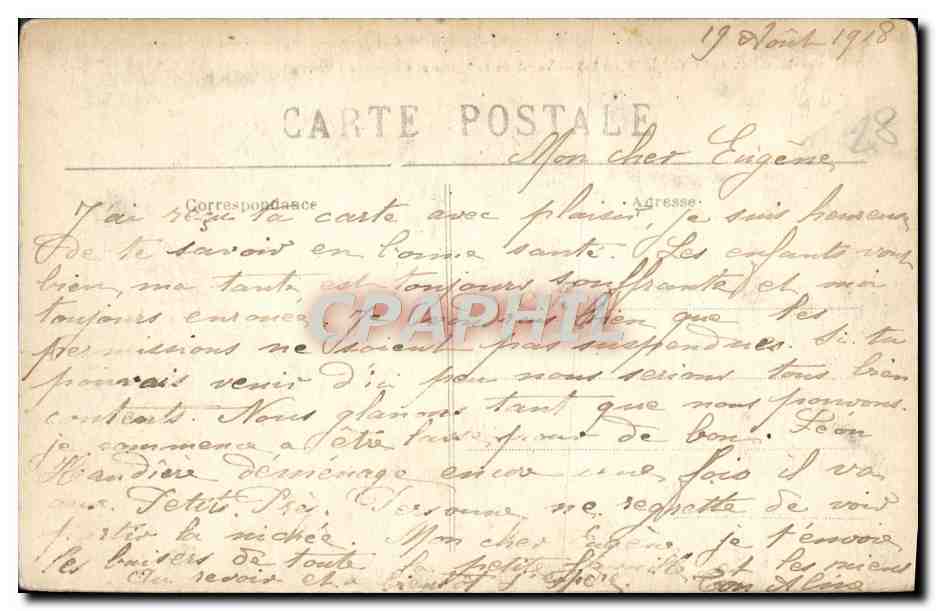 19 Août 1918
28
CARTE POSTALE
Mon cher Eugène
Correspondance
Adresse
J'ai reçu ta carte avec plaisir, je suis heureux
de te savoir en bonne santé. Les enfants vont
bien, ma tante est toujours souffrante et moi
toujours enrouée. Je voudrais bien que les
permissions ne soient pas suspendues. Si tu
pouvais venir d'ici peu nous serions tous bien
contents. Nous glanons tant que nous pouvons.
je commence a être lasse pour de bon. Léon
Handière déménage encore une fois il va
aux Petits Prés. Personne ne regrette de voir
partir la nichée. Mon cher Eugène je t'envoie
les baisers de toute la petite famille et les miens
Au revoir et a bientôt j'espère. Ton Aline
CPAPHIL